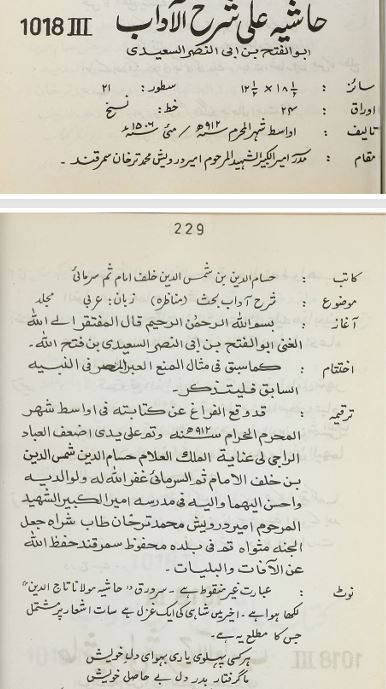 حاشیه علی شرح الآداب
1018 III
ابوالفتح بن ابی النصر السعیدی
سائز : ۱۸½ × ۱۲½ سطور : ۲۱
اوراق : ۲۴ خط : نسخ
تالیف : اواسط شهر المحرم ۹۱۲ھ / مئی ۱۵۰۶ء
مقام : مدرسه امیر الکبیر الشهید المرحوم امیر درویش محمد ترخان سمرقند ۔
229
کاتب : حسام الدین بن شمس الدین خلف امام ثم سرمائی
موضوع : شرح آداب بحث (مناظره) زبان : عربی مجلد
آغاز : بسم الله الرحمٰن الرحیم قال المفتقر الی الله
الغنی ابوالفتح بن ابی النصر السعیدی بن فتح الله ۔
اختتام : کما سبق فی مثال المنع الغیر المضر فی التنبیه
السابق فلیتذکر ۔
ترقیمه : قد وقع الفراغ عن کتابته فی اواسط شهر
المحرم الحرام سنة ۹۱۲ھ وتم علی یدی اضعف العباد
الراجی الی عنایة الملک العلام حسام الدین شمس الدین
بن خلف الامام ثم السرمائی غفر الله له ولوالدیه
واحسن الیهما والیه فی مدرسه امیر الکبیر الشهید
المرحوم امیر درویش محمد ترخان طاب ثراه جعل
الجنه مثواه قد فی بلده محفوظ سمرقند حفظ الله
عن الآفات والبلیات ۔
نوٹ : عبارت غیر منقوط ہے ۔ سرورق "حاشیه مولانا تاج الدین"
لکھا ہوا ہے ۔ اخیر میں شاہی کی ایک غزل ہے سات اشعار پر مشتمل
جس کا مطلع یہ ہے ۔
هر کسی پهلوی یاری بهوای دل خویش
ما گرفتار بدر دل بے حاصل خویش